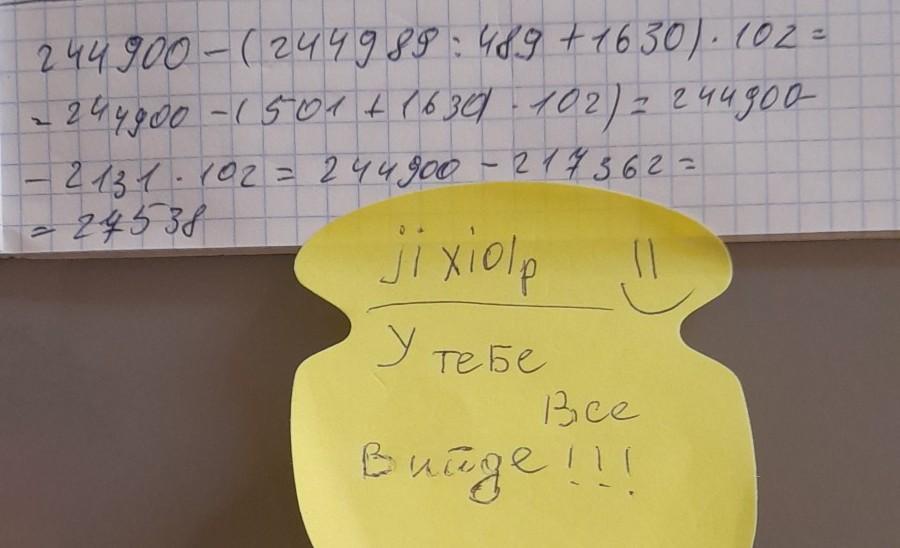 244900 - (244989 : 489 + 1630) · 102 =
= 244900 - (501 + 1630) · 102) = 244900 -
- 2131 · 102 = 244900 - 217362 =
= 27538
jixiolp
У тебе
Все
Вийде!!!